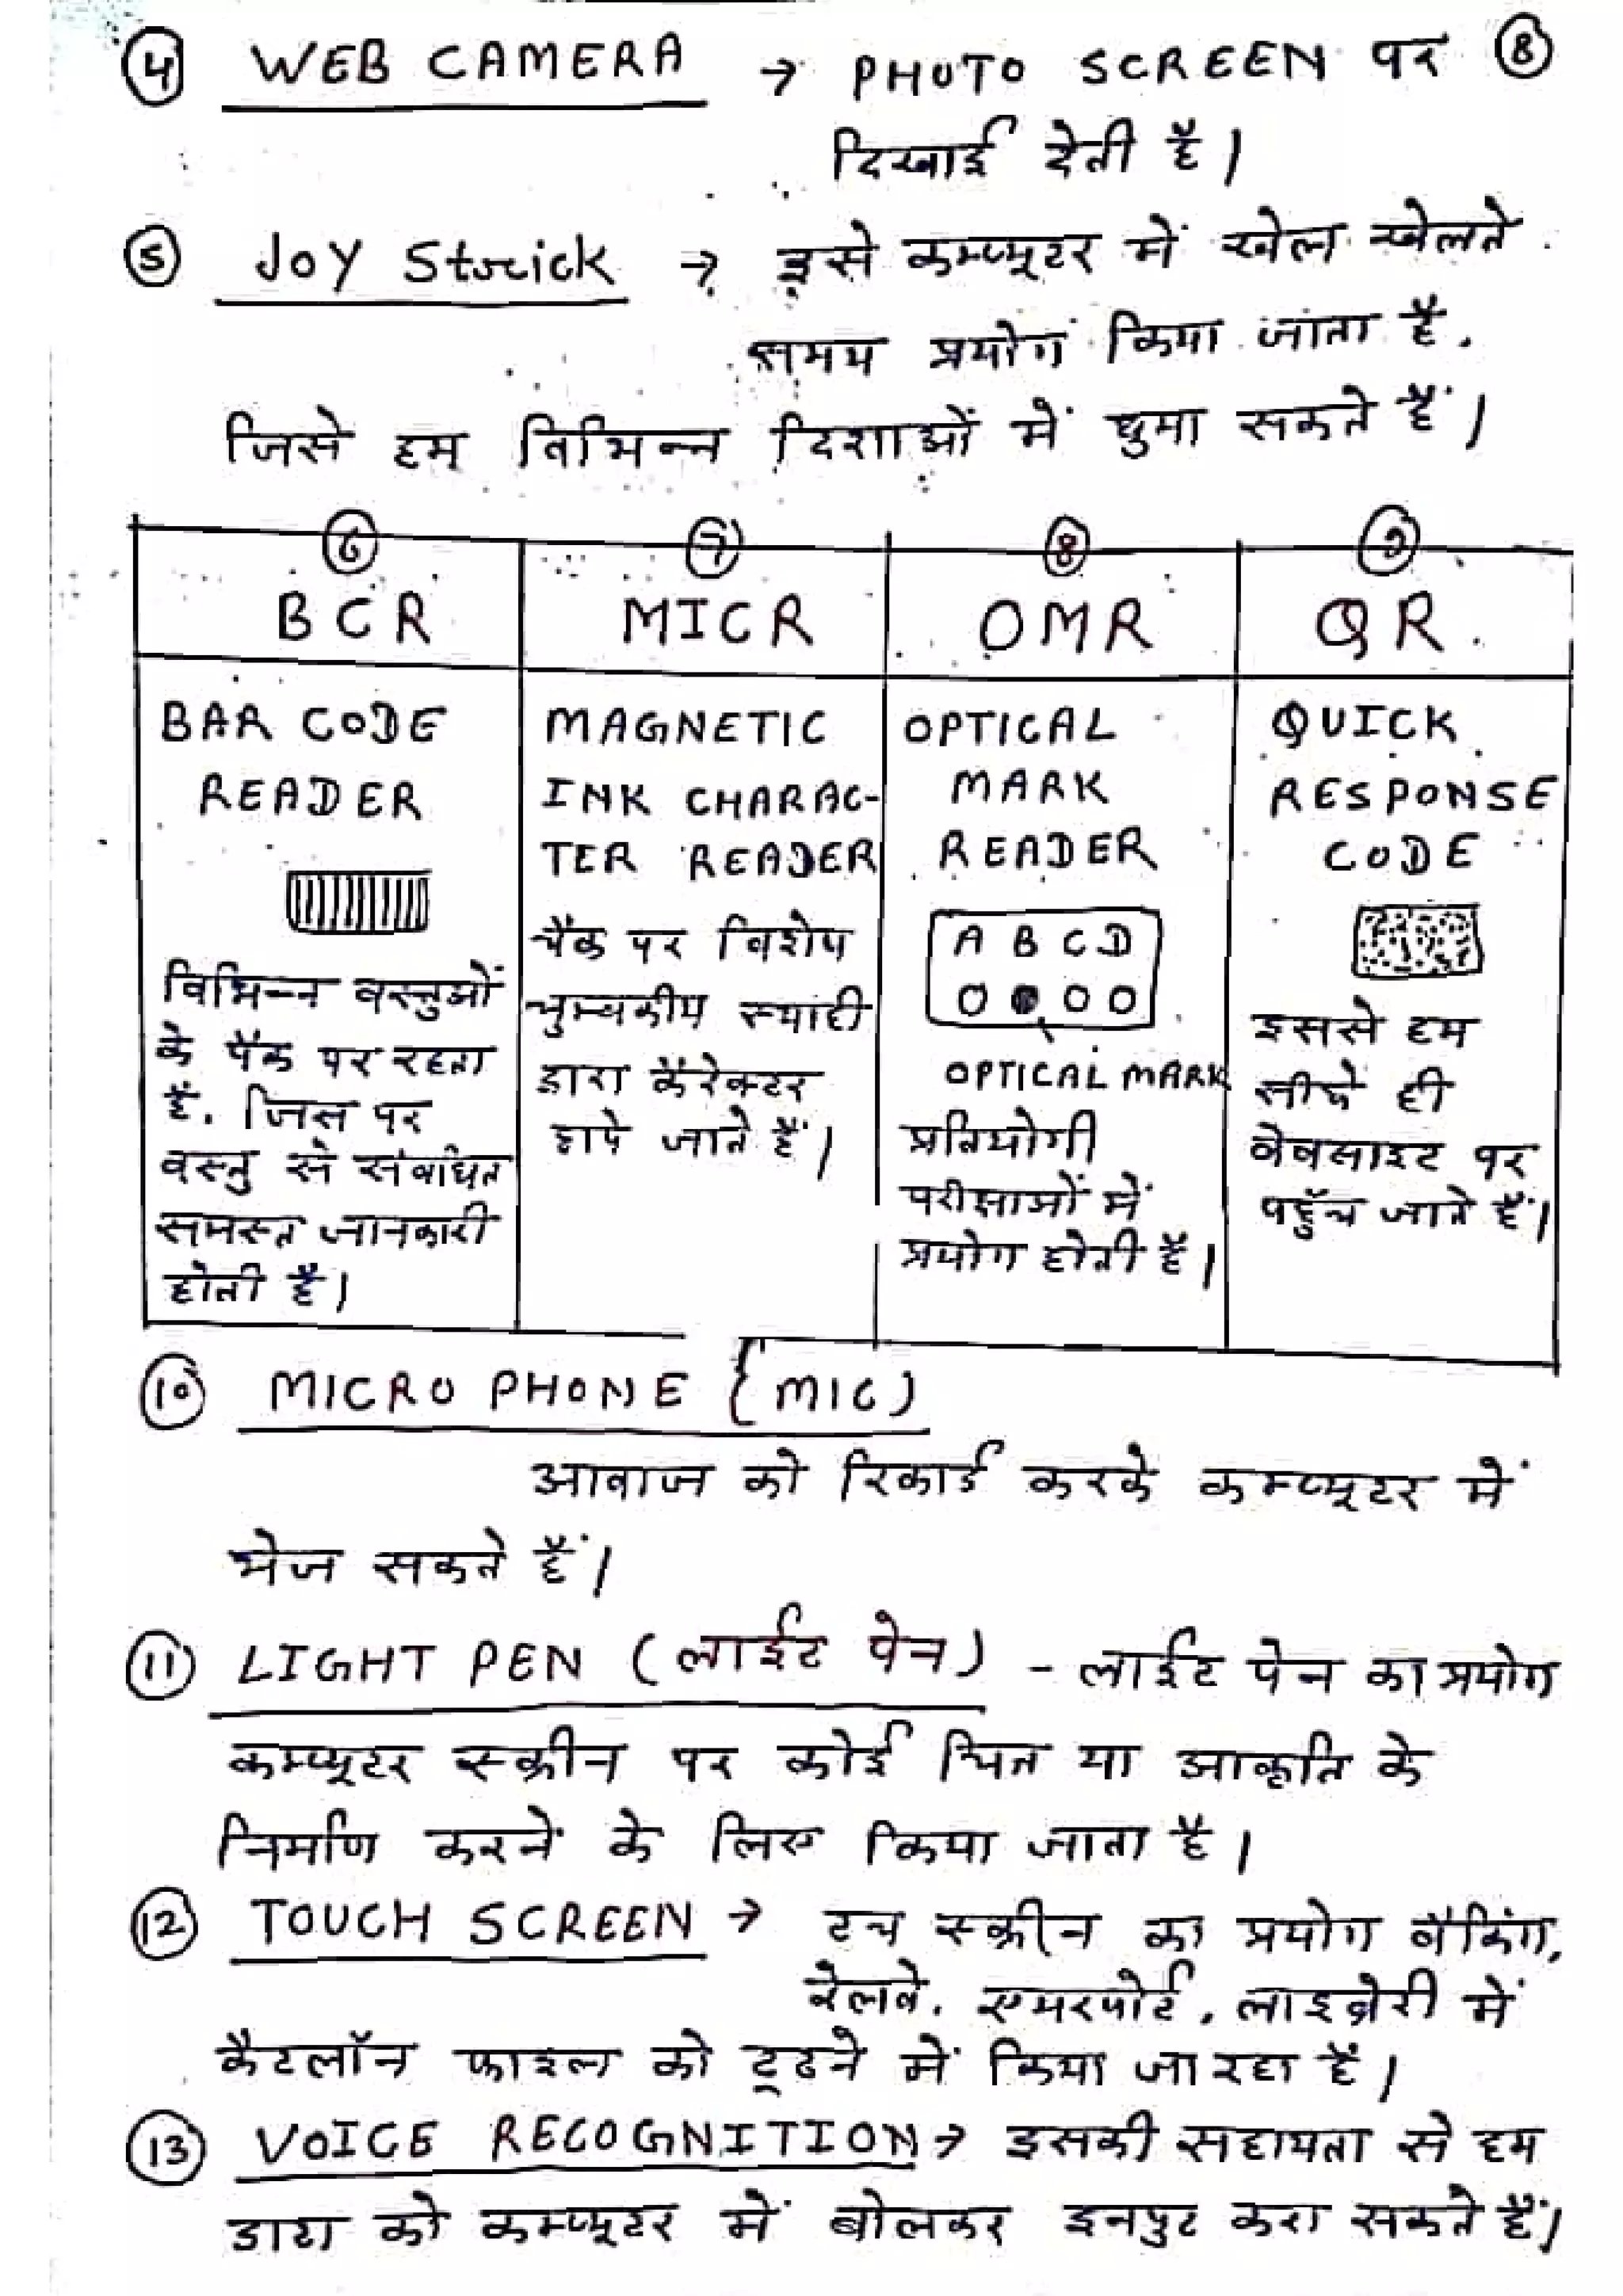 ④ WEB CAMERA → PHOTO SCREEN पर ⑧
दिखाई देती है।
⑤ JOY Strick → इसे कम्प्यूटर में खेल खेलते
समय प्रयोग किया जाता है,
जिसे हम विभिन्न दिशाओं में घुमा सकते हैं।
⑥
BCR
BAR CODE
READER
विभिन्न वस्तुओं
के पैक पर रहता
है, जिस पर
वस्तु से संबधित
समस्त जानकारी
होती है।
⑦
MICR
MAGNETIC
INK CHARAC-
TER READER
चैक पर विशेष
चुम्बकीय स्याही
द्वारा कैरेक्टर
छापे जाते हैं।
⑧
OMR
OPTICAL
MARK
READER
A B C D
OPTICAL MARK
प्रतियोगी
परीक्षाओं में
प्रयोग होती है।
⑨
QR
QUICK
RESPONSE
CODE
इससे हम
सीधे ही
वेबसाइट पर
पहुँच जाते हैं।
⑩ MICRO PHONE {MIC)
आवाज को रिकार्ड करके कम्प्यूटर में
भेज सकते हैं।
⑪ LIGHT PEN (लाईट पेन) - लाईट पेन का प्रयोग
कम्प्यूटर स्क्रीन पर कोई चित्र या आकृति के
निर्माण करने के लिए किया जाता है।
⑫ TOUCH SCREEN → टच स्क्रीन का प्रयोग बैंकिंग,
रेलवे, एयरपोर्ट, लाइब्रेरी में
कैटलॉन फाइल को ढूढने में किया जा रहा हैं।
⑬ VOICE RECOGNITION → इसकी सहायता से हम
डाटा को कम्प्यूटर में बोलकर इनपुट करा सकते हैं।